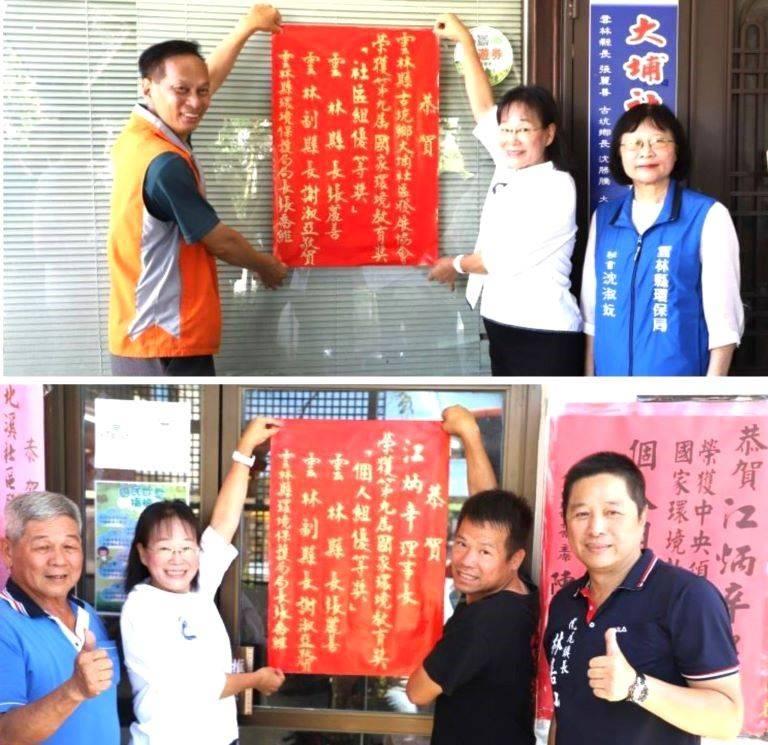 恭賀
雲林縣古坑鄉大埔社區發展協會
榮獲「第九屆國家環境教育獎
「社區組優等獎」
雲林縣長張麗善
雲林副縣長謝淑亞敬賀
雲林縣環境保護局局長張喬維
大埔社
雲林縣長 張麗善 古坑鄉長 沈勝騰 大
雲林縣環保局
秘書 沈淑妧
北溪社區
恭
恭賀
江炳幸理事長
榮獲「第九屆國家環境教育獎
「個人組優等獎」
雲林縣長張麗善
雲林副縣長謝淑亞敬賀
雲林縣環境保護局局長張喬維
恭賀 江炳幸
榮獲中央頒
國家環境教
個人組
席 陳
虎尾鎮長
林